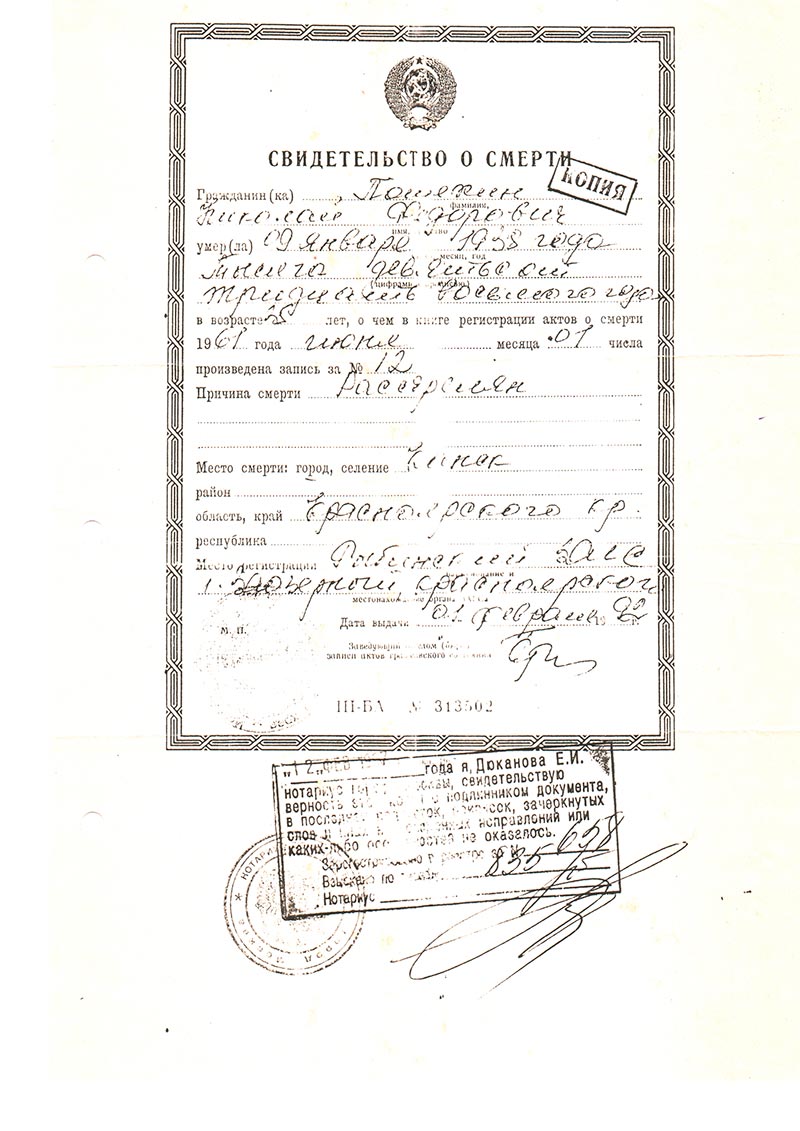 СВИДЕТЕЛЬСТВО О СМЕРТИ
КОПИЯ
Гражданин (ка)
фамилия,
Николай Федорович
умер(ла) 09 января 1938 года
месяц, год
тысяча девятьсот
тридцать восьмого года
в возрасте лет, о чем в книге регистрации актов о смерти
1961 года июня месяца 01 числа
произведена запись за № 12
Причина смерти Расстрелян
Место смерти: город, селение Канск
район
область, край Красноярского кр.
республика
Место регистрации Рыбинский ЗАГС
г. Заозерный, Красноярского
Дата выдачи 01 февраля 1992 г.
М. П.
Заведующий
записи актов гражданского состояния
III-БА № 313502
"12" ФЕВ года я, Дюканова Е.И.
нотариус свидетельствую
верность с подлинником документа,
в последнем зачеркнутых
слов исправлений или
каких-либо особенностей не оказалось.
Зарегистрировано в реестре за №
Взыскано по
Нотариус